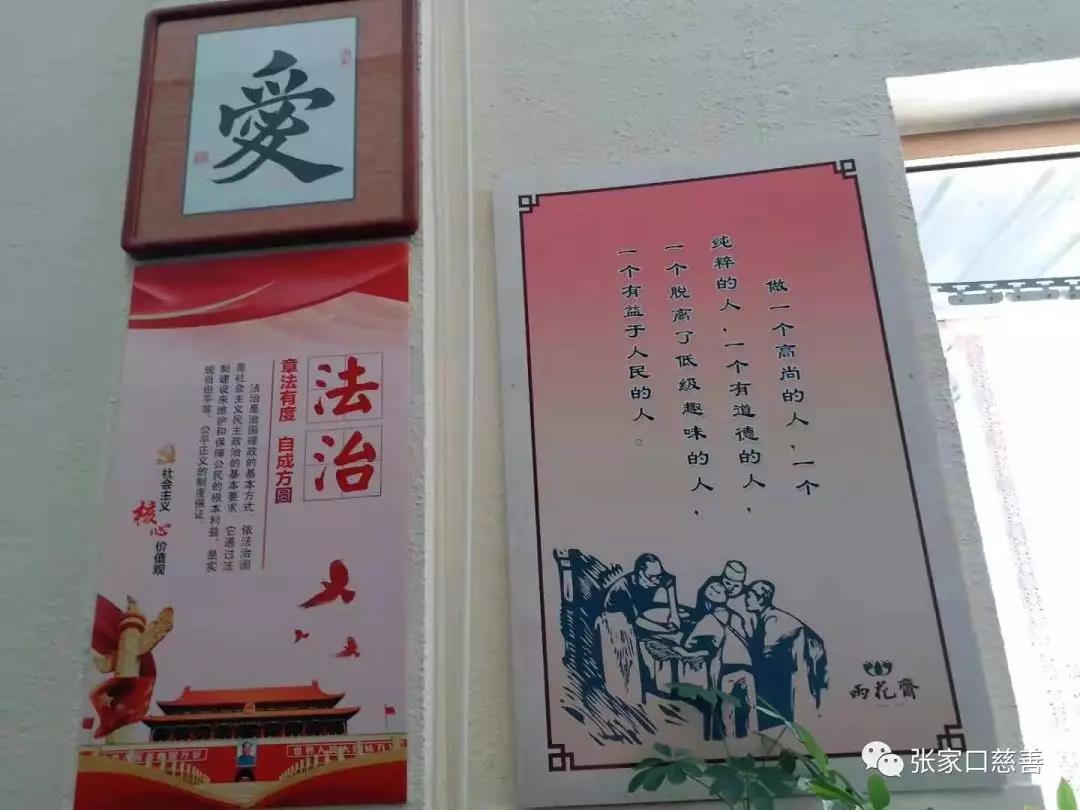 愛
法治
章法有度 自成方圆
法治是治国理政的基本方式 依法治国
是社会主义民主政治的基本要求 它通过法
制建设来维护和保障公民的根本利益，是实
现自由平等，公平正义的制度保证。
社会主义
核心
价值观
世界人民大团结万岁
做一个高尚的人，一个
纯粹的人，一个有道德的人，
一个脱离了低级趣味的人，
一个有益于人民的人。
雨花齋
张家口慈善